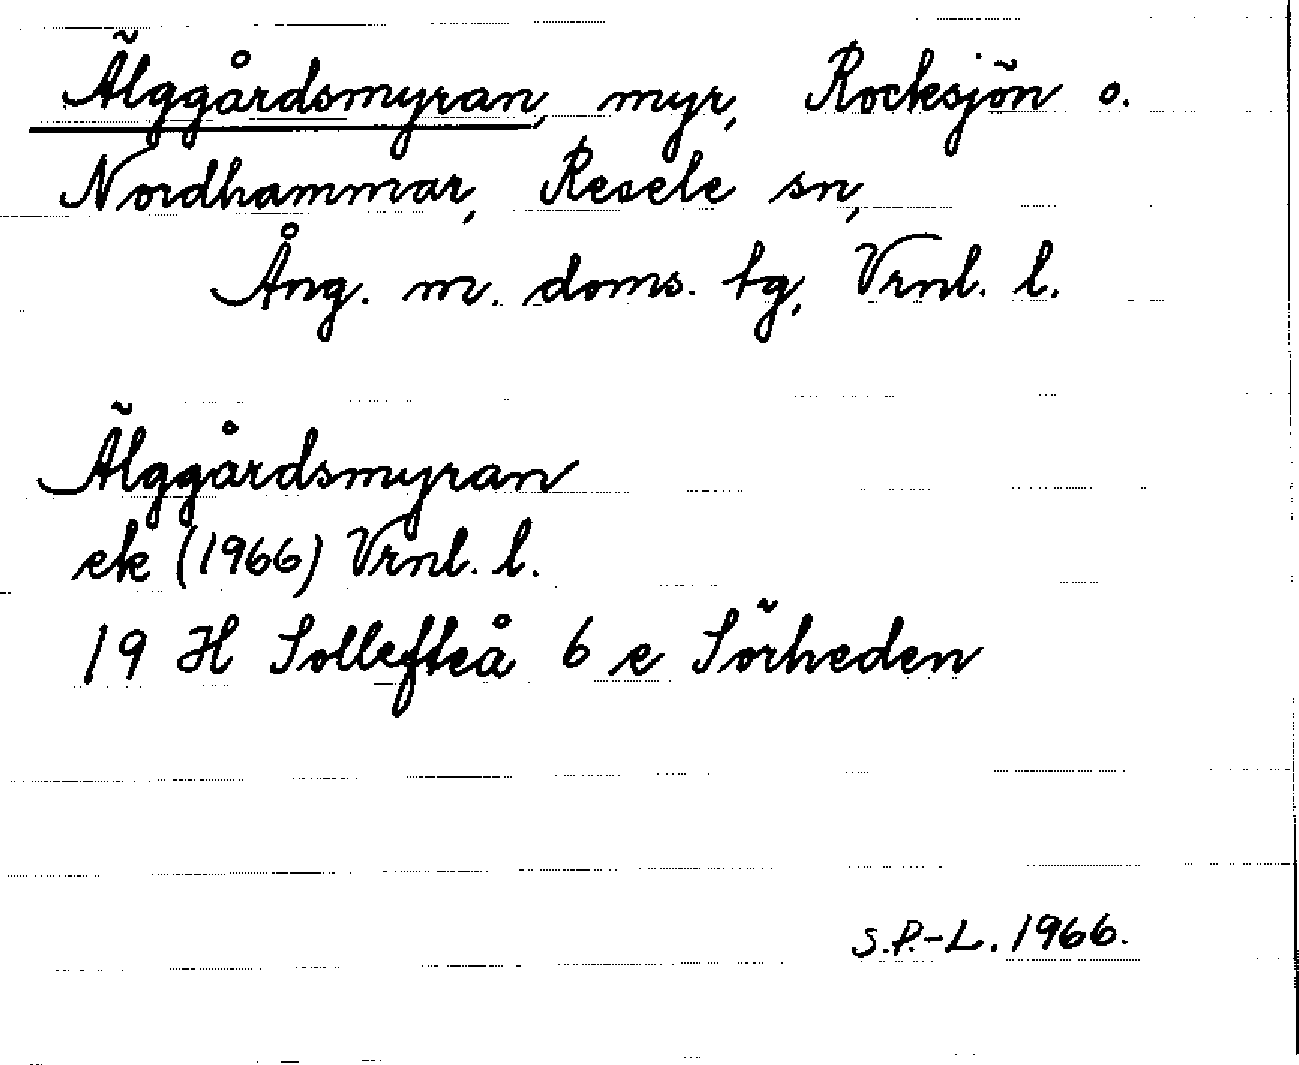 Älggårdsmyran, myr, Rocksjön o.
Nordhammar, Resele sn,
Ång. m. doms. tg, Vrnl. l.
Älggårdsmyran
ek (1966) Vrnl. l.
19 H Sollefteå 6 e Sörheden
S.P.-L. 1966.